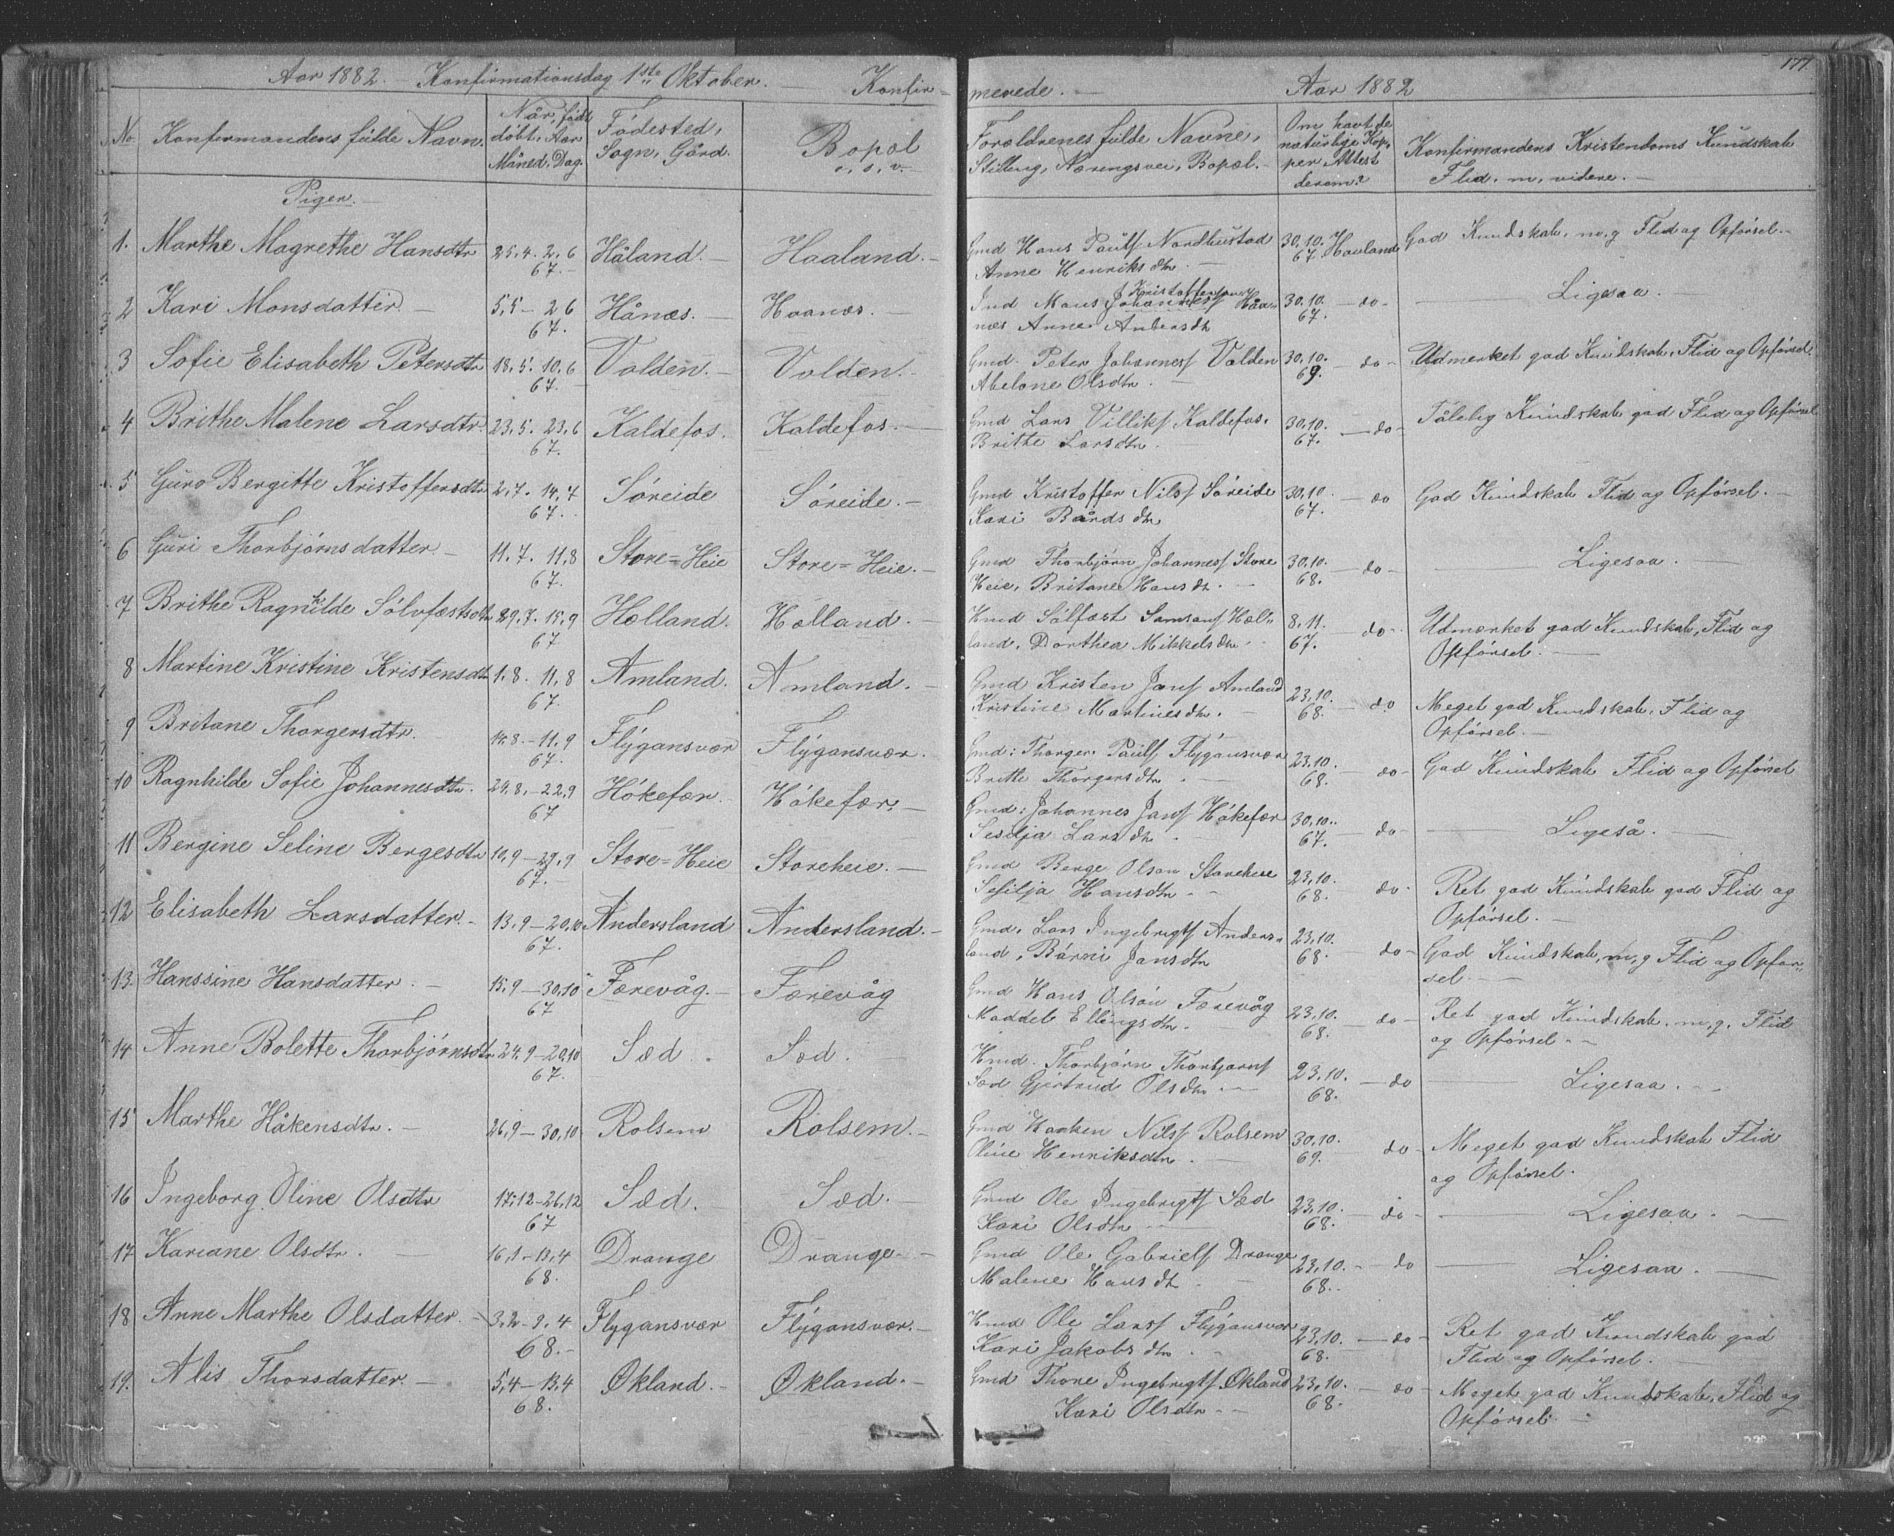 Aar 1882. — Konfirmationsdag 1ste Oktober. — Konfir-
merede. — Aar 1882 177
No Konfirmandens fulde Navn. Når født døbt, Aar Måned, Dag. Fødested, Sogn, Gård. Bopæl o, s, v.
Forældrenes fulde Navne, Stilling, Næringsvei, Bopæl. Om havt de naturlige Kopper Attest derom? Konfirmandens Kristendoms Kundskab Flid. m, videre. —
Piger. —
1. Marthe Magrethe Hansdtr 25.4. 2.6 67. Håland. — Haaland. — Gmd Hans Pauls Nordhustad Anne Henriksdtr 30.10. 67. Havland God Kundskab, m, g Flid og Opførsel. —
2 Kari Monsdatter — 5.5 — 2 6 67. Hånæs. — Haanæs. — Mons Kristoffersen Haanæs Anne Andersdtr 30.10. 67. — do — Ligesaa.
3 Sofie Elisabeth Petersdtr 18.5. 10.6 67. Valden. — Valden. — Gmd. Peter Johanness Valden Abelone Olsdtr. 30.10. 69. — do — Udmerket god Kundskab, Flid og Opførsel.
4 Brithe Malene Larsdtr. 23.5. 23.6 67. Kaldefos. Kaldefos. — Gmd Lars Villiks Kaldefos. Britte Larsdtr. 30.10. 67. — do — Tålelig Kundskab god Flid og Opførsel
5 Guro Bergitte Kristoffersdtr 2.7. 14.7 67. Søreide Søreide. — Gmd Kristoffer Nils Søreide Kari Bårdsdtr 30.10. 67. — do God Kundskab Flid og Opførsel. —
6 Guri Thorbjørnsdatter — 11.7. 11.8 67. Store=Heie Store=Heie. — Gmd Thorbjørn Johanness Store Heie, Britane Hansdtr. 30.10. 68. — do — Ligesaa. —
7 Brithe Ragnhilde Sølvfæstsdtr 29.7. 15.9 67 Hølland. Hølland. — Hmd Sølfæst Samsons Hølland, Dorthea Mikkelsdtr 8.11. 67. — do — Udmærket god Kundskab, Flid og Opførsel. —
8 Martine Kristine Kristensdtr 1.8. 11.8 67. Amland. Amland. — Gmd Kristen Jans Amland Kristine Martinesdtr. 23.10. 68. — do Meget god Kundskab. Flid og Opførsel. —
9 Britane Thorgersdtr. 14.8 — 11.9 67. Flygansvær Flygansvær. Gmd: Thorger Pauls Flygansvær Brithe Thorgersdtr 23.10. 68. — do — God Kundskab Flid og Opførsel
10 Ragnhilde Sofie Johannesdtr. 24.8. — 22.9 67 Håkefær. Håkefær. — Gmd: Johannes Jans Håkefær Sesilja Larsdtr 30.10. 67. — do — Ligeså. —
11 Bergine Seline Bergesdtr 10.9 — 29.9 67. Store=Heie Storeheie. — Gmd Berge Olson Storeheie Sesilja Hansdtr 23.10. 68. do — Ret god Kundskab god Flid og Opførsel. —
12 Elisabeth Larsdatter. — 13.9 — 20.10 67. Andersland Andersland. — Gmd. Lars Ingebrigts Andersland, Bårni Jansdtr 23.10. 68. — do — God Kundskab, m, g Flid og Opførsel. —
13. Hanssine Hansdatter. — 15.9 — 30.10 67 Færevåg. — Færevåg Gmd Hans Olson Færevåg Maddele Ellingsdtr. 23.10. 68. — do — Ret god Kundskab. m, g. Flid og Opførsel. —
14 Anne Bolette Thorbjørnsdtr 24.9 — 20.10 67. Sæd. Sæd. — Hmd. Thorbjørn Thorbjørns Sæd Gjertrud Olsdtr 23.10. 68. — do — Ligesaa. —
15 Marthe Håkensdtr. — 26.9 — 30.10 Rolsem Rolsem. — Gmd Haaken Nils Rolsem Oline Henriksdtr — 30.10. 69. — do — Meget god Kundskab Flid og Opførsel.
16 Ingeborg Oline Olsdtr 17.12 — 26.12 67 Sæd. — Sæd. Gmd Ole Ingebrigts Sæd Kari Olsdtr — 23.10. 68. — do — Ligesaa. —
17 Kariane Olsdtr. — 16.1 — 13.4 68. Drange Drange. — Gmd Ole Gabriels Drange Malene Hansdtr 23.10. 68. — do — Ligesaa. —
18 Anne Marthe Olsdatter. — 3.2 — 9.4 68. — Flygansvær Flygansvær. — Hmd Ole Lars Flygansvær Kari Jakobsdtr 23.10. 68. — do — Ret god Kundskab god Flid og Opførsel. —
19. Alis Thorsdatter. — 5.4 — 13.4 68. Økland. — Økland. — Gmd Thore Ingebrigts. Økland Kari Olsdtr — 23.10. 68. — do — Meget god Kundskab, Flid og Opførsel. —